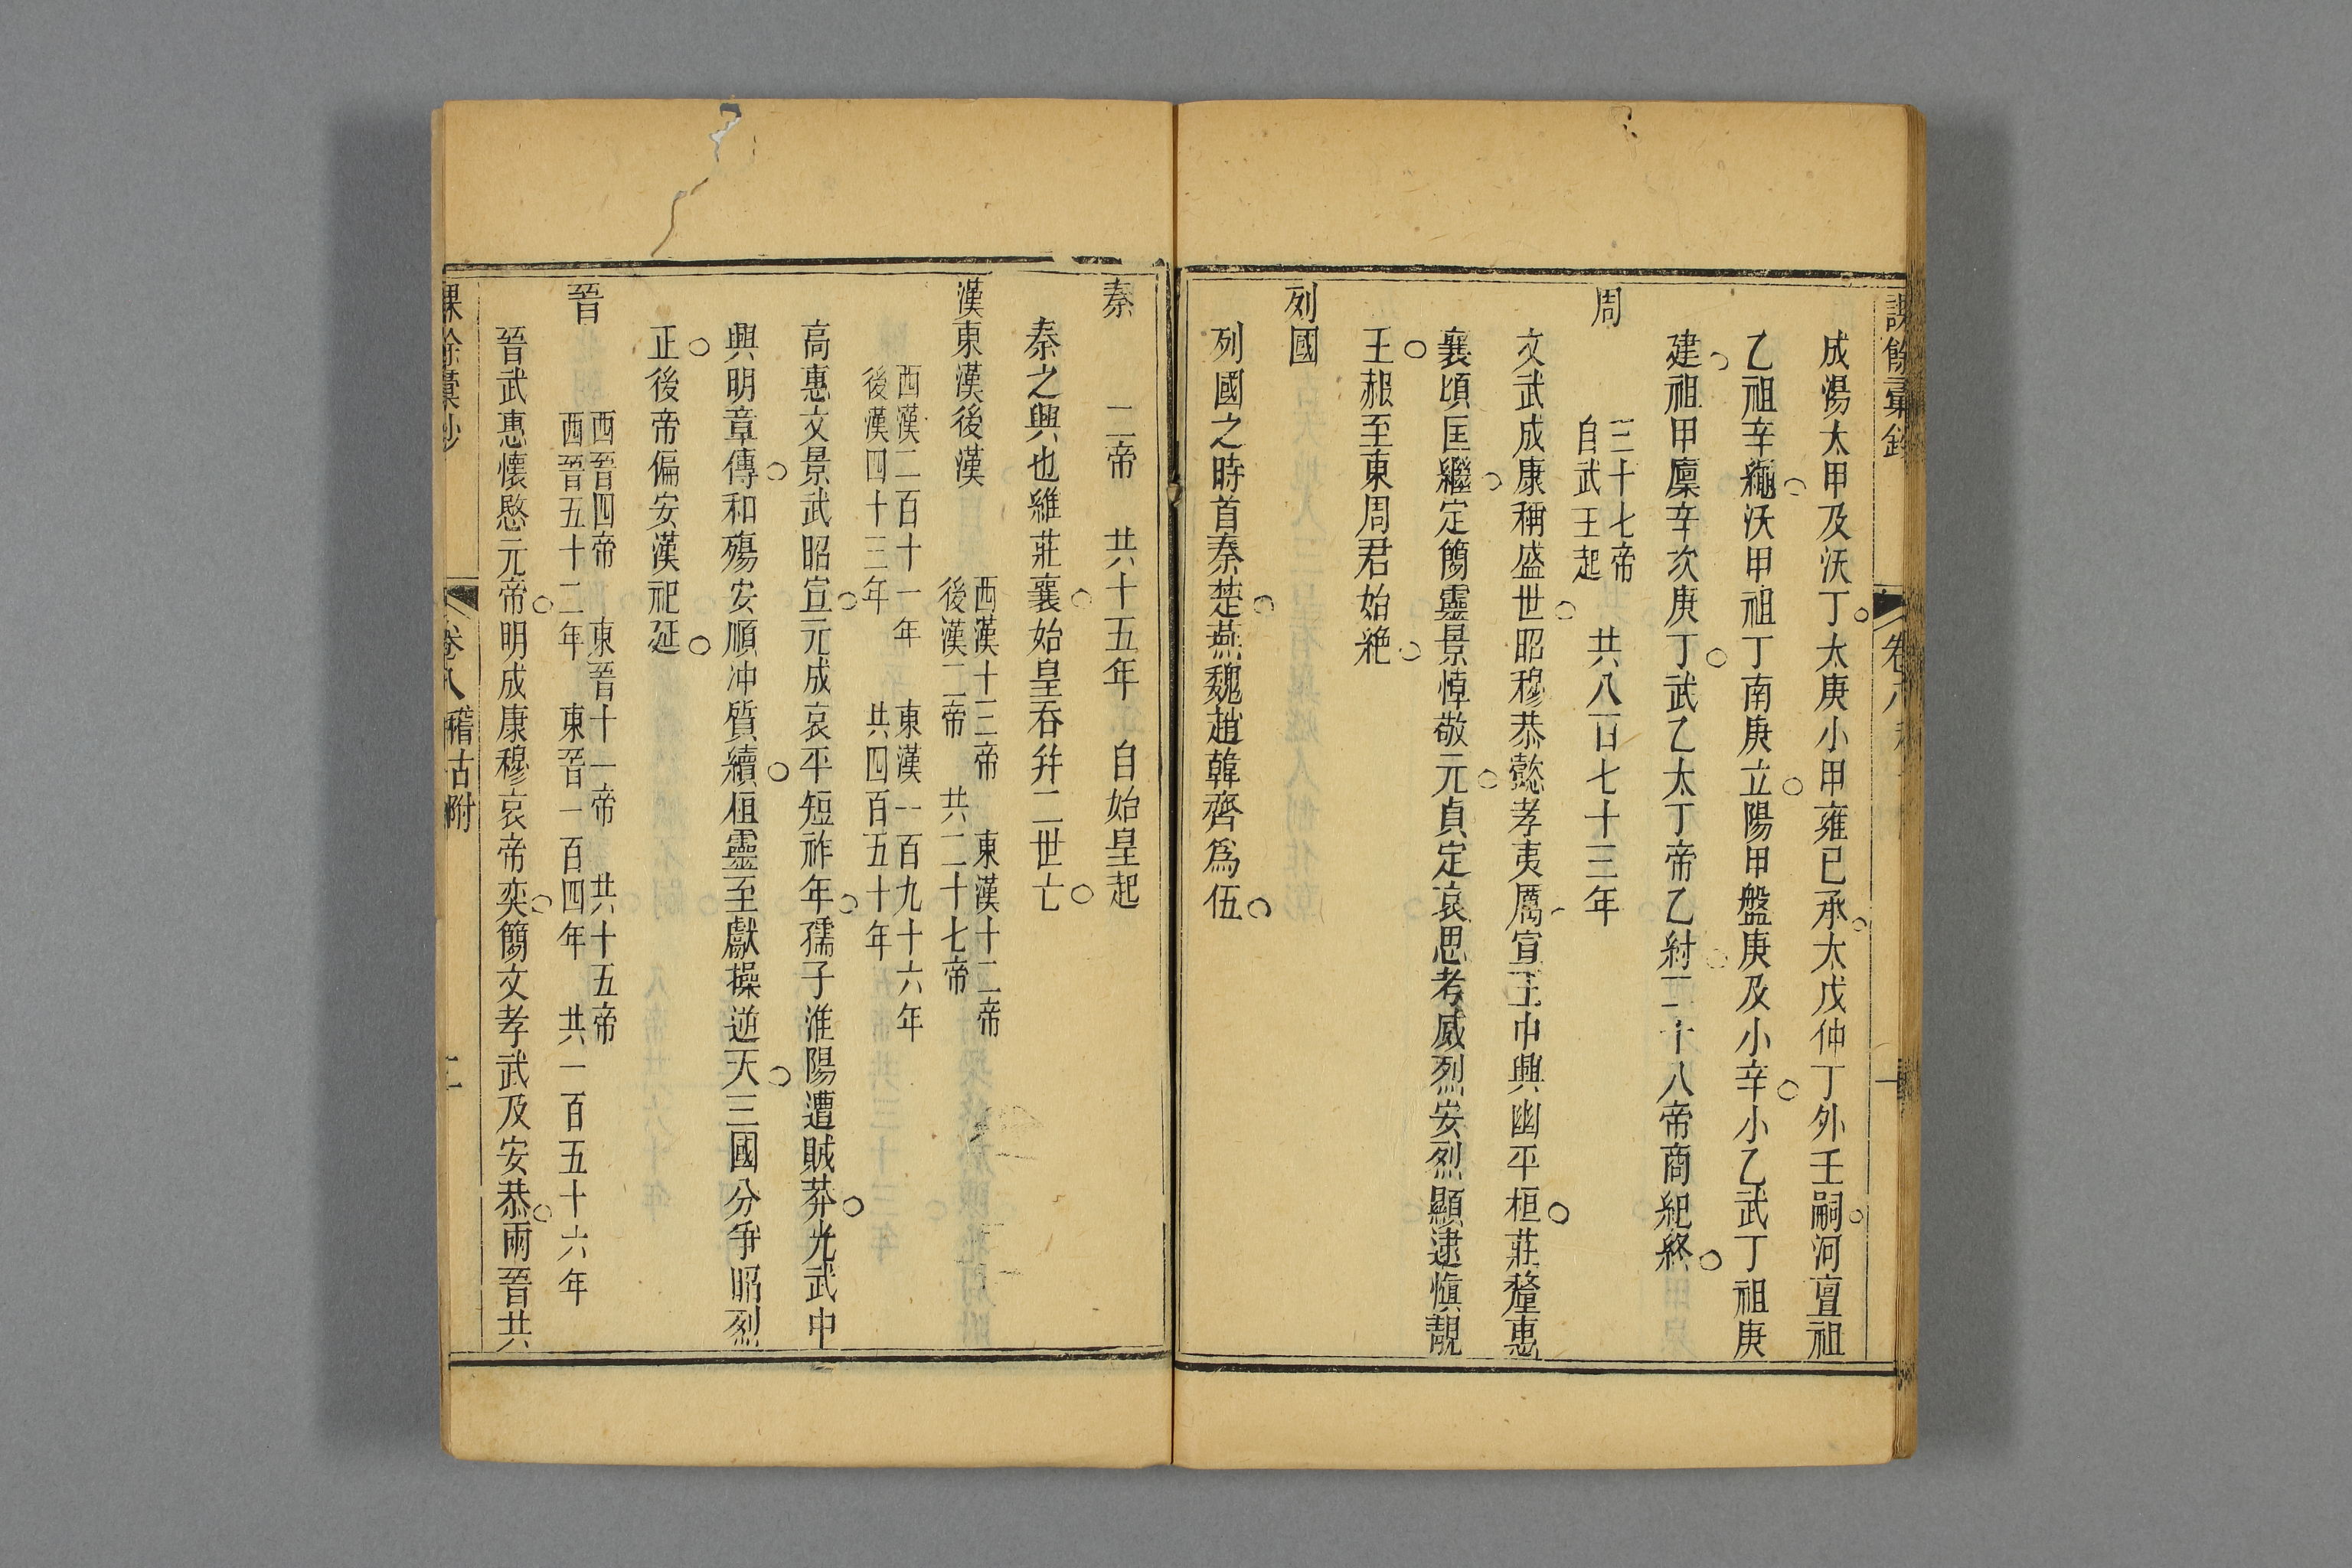 成湯太甲及沃丁○太庚小甲雍已承○太戊仲丁外壬嗣○河亶祖
乙祖辛繼○沃甲祖丁南庚立○陽甲盤庚及小辛○小乙武丁祖庚
建○祖甲廩辛次庚丁○武乙太丁帝乙紂○二十八帝商紀終○
周
三十七帝
自武王起
共八百七十三年
文武成康稱盛世○昭穆恭懿孝夷厲○宣王中興幽平桓○莊釐惠
襄頃匡繼○定簡靈景悼敬元○貞定哀思考威烈安烈顯逮慎靚
王○赧至東周君始絶○
列國
列國之時首秦楚○燕魏趙韓齊爲伍○
秦 二帝 共十五年 自始皇起
秦之興也維莊襄○始皇吞并二世亡○
漢東漢後漢
西漢十三帝 東漢十二帝
後漢二帝 共二十七帝
西漢二百十一年 東漢一百九十六年
後漢四十三年 共四百五十年
高惠文景武昭宣○元成哀平短祚年○孺子淮陽遭賊莽○光武中
興明章傳○和殤安順冲質續○桓靈至獻操逆天○三國分爭昭烈
正○後帝偏安漢祀延○
晉
西晉四帝 東晉十一帝 共十五帝
西晉五十二年 東晉一百四年 共一百五十六年
晉武惠懷愍元帝○明成康穆哀帝奕○簡文孝武及安恭○兩晉共
卷八 稽古附